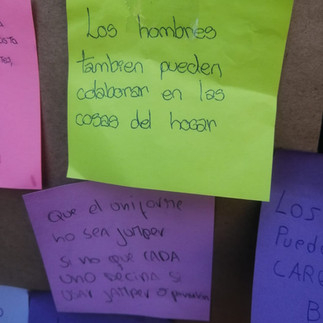 Los hombres
tambien pueden
colaborar en las
cosas del hogar
Que el uniforme
no sea jumper
si no que CADA
uno decida si
usar jumper o
Los
Puede
CARG
B